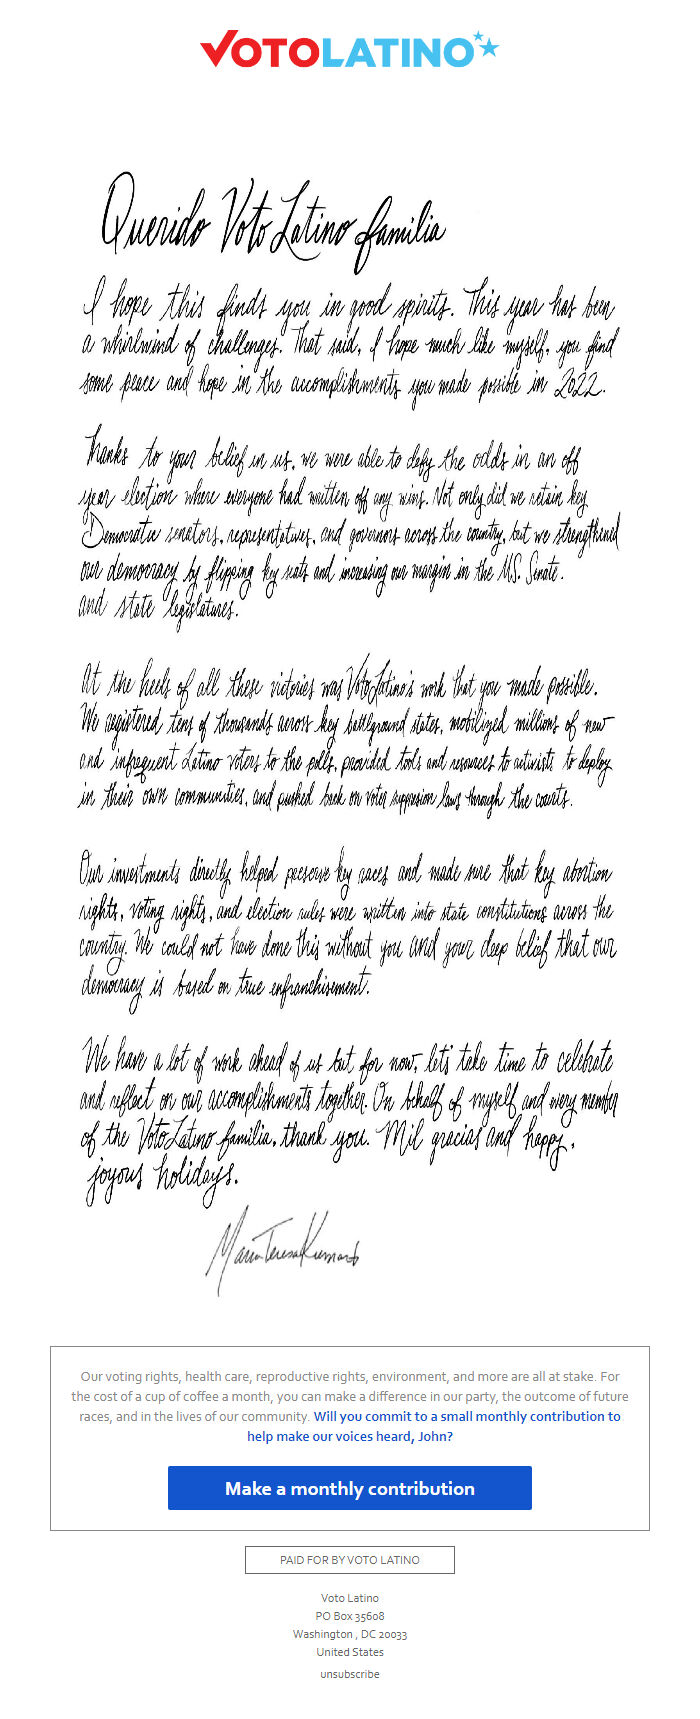 VOTOLATINO
Querido Voto Latino familia
I hope this finds you in good spirits. This year has been
a whirlwind of challenges. That said, I hope much like myself, you find
some peace and hope in the accomplishments you made possible in 2022.
Thanks to your belief in us, we were able to defy the odds in an off
year election where everyone had written off any wins. Not only did we retain key
Democratic senators, representatives, and governors across the country, but we strengthened
our democracy by flipping key seats and increasing our margin in the U.S. Senate.
and state legislatures.
At the heels of all these victories was Voto Latino's work that you made possible.
We registered tens of thousands across key battleground states, mobilized millions of new
and infrequent Latino voters to the polls, provided tools and resources to activists to deploy
in their own communities, and pushed back on voter suppression laws through the courts.
Our investments directly helped preserve key races and made sure that key abortion
rights, voting rights, and election rules were written into state constitutions across the
country. We could not have done this without you and your deep belief that our
democracy is based on true enfranchisement.
We have a lot of work ahead of us but for now, let's take time to celebrate
and reflect on our accomplishments together. On behalf of myself and every member
of the Voto Latino familia, thank you. Mil gracias and happy,
joyous holidays.
Maria Teresa Kumar
Our voting rights, health care, reproductive rights, environment, and more are all at stake. For
the cost of a cup of coffee a month, you can make a difference in our party, the outcome of future
races, and in the lives of our community. Will you commit to a small monthly contribution to
help make our voices heard, John?
Make a monthly contribution
PAID FOR BY VOTO LATINO
Voto Latino
PO Box 35608
Washington , DC 20033
United States
unsubscribe